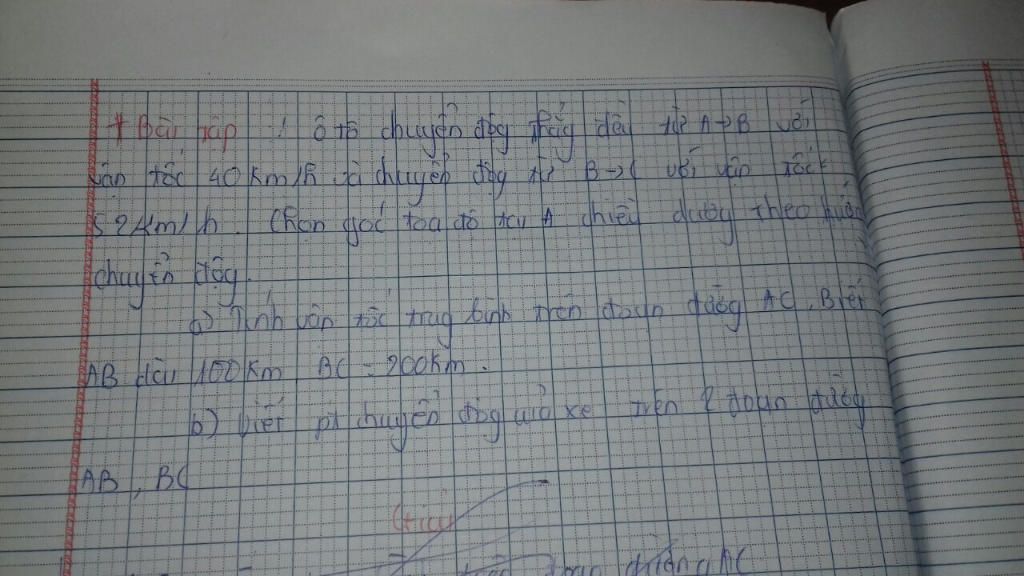 * Bài tập : Ô tô chuyển động thẳng đều từ A→B với
vận tốc 40km/h và chuyển động từ B→C với vận tốc
52km/h. Chọn gốc toạ độ tại A chiều dương theo hướng
chuyển động.
a) Tính vận tốc trug bình trên đoạn đường AC, Biết
AB dài 100km, BC = 200km.
b) Viết pt chuyển động của xe trên 2 đoạn đường
AB, BC
Giải
đoạn AC